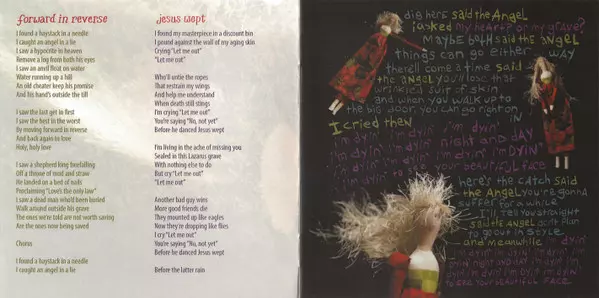 forward in reverse
I found a haystack in a needle
I caught an angel in a lie
I saw a hypocrite in heaven
Remove a log from both his eyes
I saw an anvil float on water
Water running up a hill
An old cheater keep his promise
And his hand's outside the till
I saw the last get in first
I saw the best in the worst
By moving forward in reverse
And back again to love
Holy, holy love
I saw a shepherd king freefalling
Off a throne of mud and straw
He landed on a bed of nails
Proclaiming "Love's the only law"
I saw a dead man who'd been buried
Walk around outside his grave
The ones we're told are not worth saving
Are the ones now being saved
Chorus
I found a haystack in a needle
I caught an angel in a lie
jesus wept
I found my masterpiece in a discount bin
I pound against the wall of my aging skin
Crying "Let me out"
"Let me out"
Who'll untie the ropes
That restrain my wings
And help me understand
When death still stings
I'm crying "Let me out"
You're saying "No, not yet"
Before he danced Jesus wept
I'm living in the ache of missing you
Sealed in this Lazarus grave
With nothing else to do
But cry "Let me out"
"Let me out"
Another bad guy wins
More good friends die
They mounted up like eagles
Now they're dropping like flies
I cry "Let me out"
You're saying "No, not yet"
Before he danced Jesus wept
Before the latter rain
dig here said the Angel
i asked my heart? or my grave?
MAYBE BOTH said the angel
things can go either WAY
there'll come a time said
the ANGEL you'll lose that
wrinkled suit of skin
and when you WALK up to
the big door, you can go right on
IN
I cried then
i'm dyin' i'm dyin'
i'm dyin' night and DAY
i'm dyin' i'm dyin' i'm DYIN'
i'm dyin' to see
BEAUTIFUL FACE
here's the CATCH SAID
the ANGEL you're gonna
suffer for a while
I'll tell you straight
said the ANGEL don't plan
to go out in style
and meanwhile i'm dyin'
i'm dyin' i'm dyin' i'm
dyin' night and DAY i'm dyin' i'm
dyin' i'm dyin' i'm dyin' i'm dyin'
to see your beautiful FACE